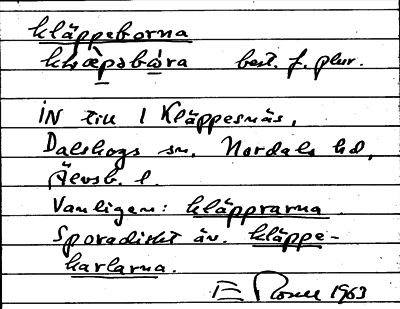 kläppeborna
klæ̀pəbὼra best. f. plur.
IN till 1 Kläppesnäs,
Dalskogs sn, Nordals hd,
Älvsb. l.
Vanligen: kläpprarna.
Sporadiskt äv. kläppe-
karlarna.
E Rosell 1963